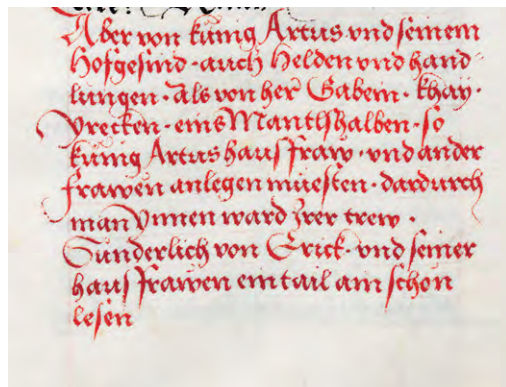 Aber von kunig Artus vnd seinem
Hofgesind · auch Helden vnd hand
lungen · als von her Gabein · khay ·
Yrecken · eins Mantls halben · so
kunig Artus hausfraw · vnd ander
frawen anlegen muesten · dardurch
man Ynnen ward Irer trew ·
Sunderlich von Erick · vnd seiner
hausfrawen ein tail am schon
lesen